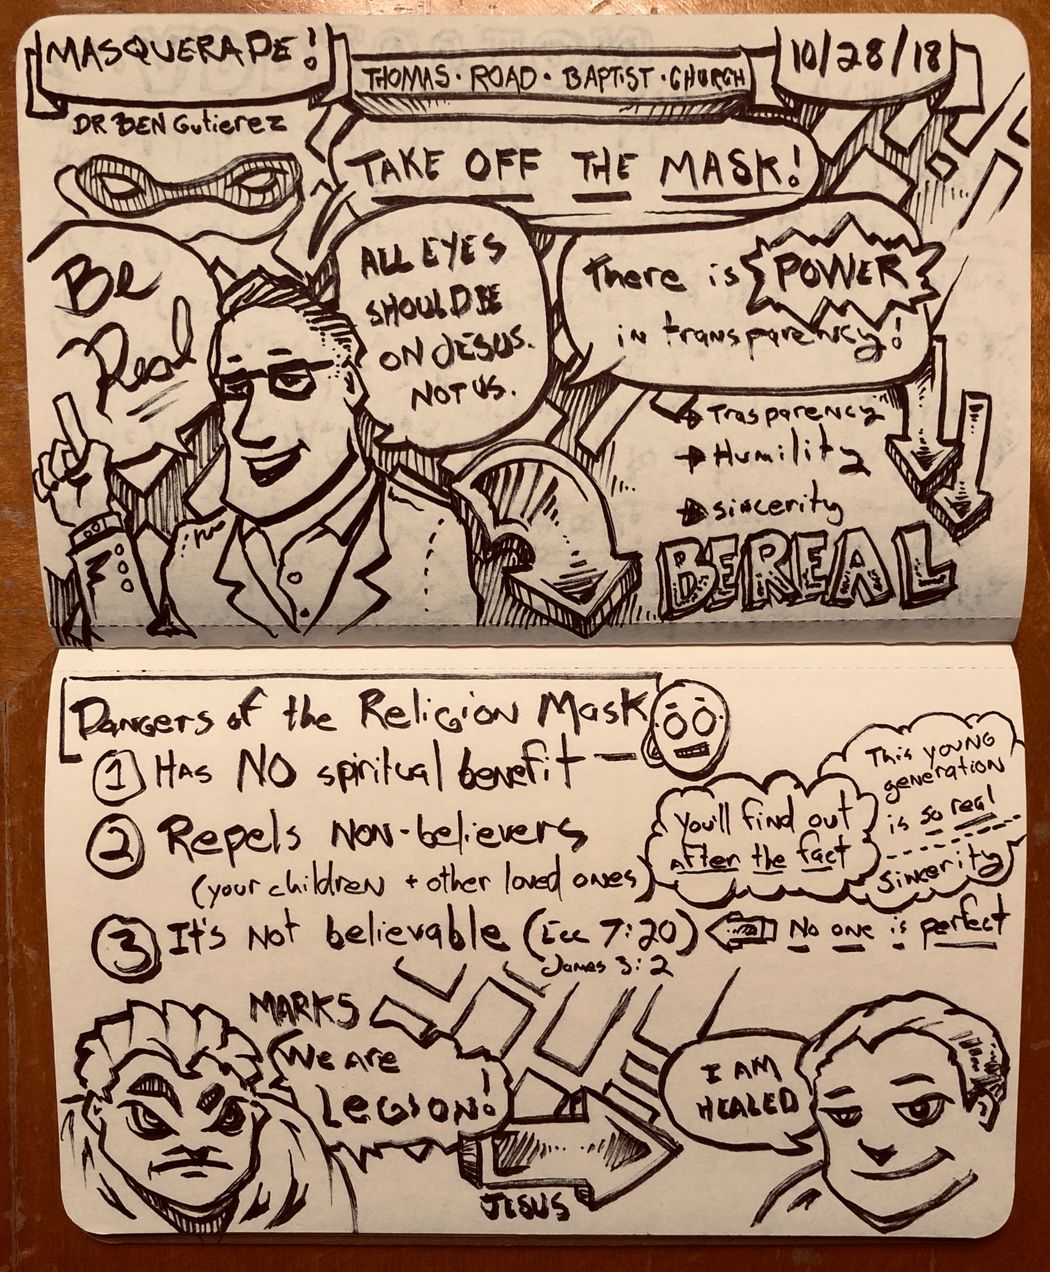 MASQUERADE!
THOMAS · ROAD · BAPTIST · CHURCH
10/28/18
DR BEN Gutierez
TAKE OFF THE MASK!
Be
Real
ALL EYES
SHOULD BE
ON JESUS.
NOT US.
There is POWER
in transparency!
Trasparency
Humility
sincerity
BEREAL
Dangers of the Religion Mask
1 Has NO spiritual benefit
2 Repels non-believers
(your children + other loved ones)
3 It's not believable (Ecc 7:20)
James 3:2
No one is perfect
You'll find out
after the fact
This young
generation
is so real
Sincerity
MARK5
We Are
Legion!
JESUS
I AM
HEALED